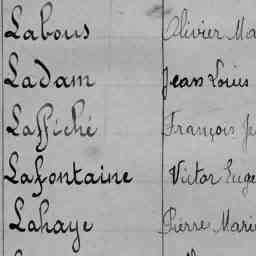 Labous Olivier Ma
Ladam Jean Louis
Laffiché François Je
Lafontaine Victor Euge
Lahaye Pierre Marie